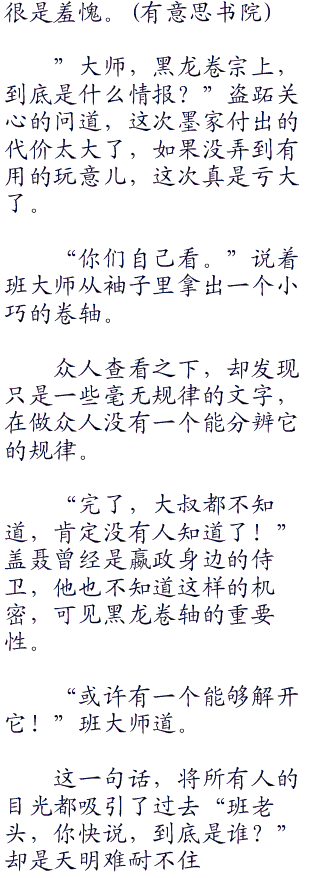 很是羞愧。(有意思书院)
”大师，黑龙卷宗上，
到底是什么情报？”盗跖关
心的问道，这次墨家付出的
代价太大了，如果没弄到有
用的玩意儿，这次真是亏大
了。
“你们自己看。”说着
班大师从袖子里拿出一个小
巧的卷轴。
众人查看之下，却发现
只是一些毫无规律的文字，
在做众人没有一个能分辨它
的规律。
“完了，大叔都不知
道，肯定没有人知道了！”
盖聂曾经是嬴政身边的侍
卫，他也不知道这样的机
密，可见黑龙卷轴的重要
性。
“或许有一个能够解开
它！”班大师道。
这一句话，将所有人的
目光都吸引了过去“班老
头，你快说，到底是谁？”
却是天明难耐不住